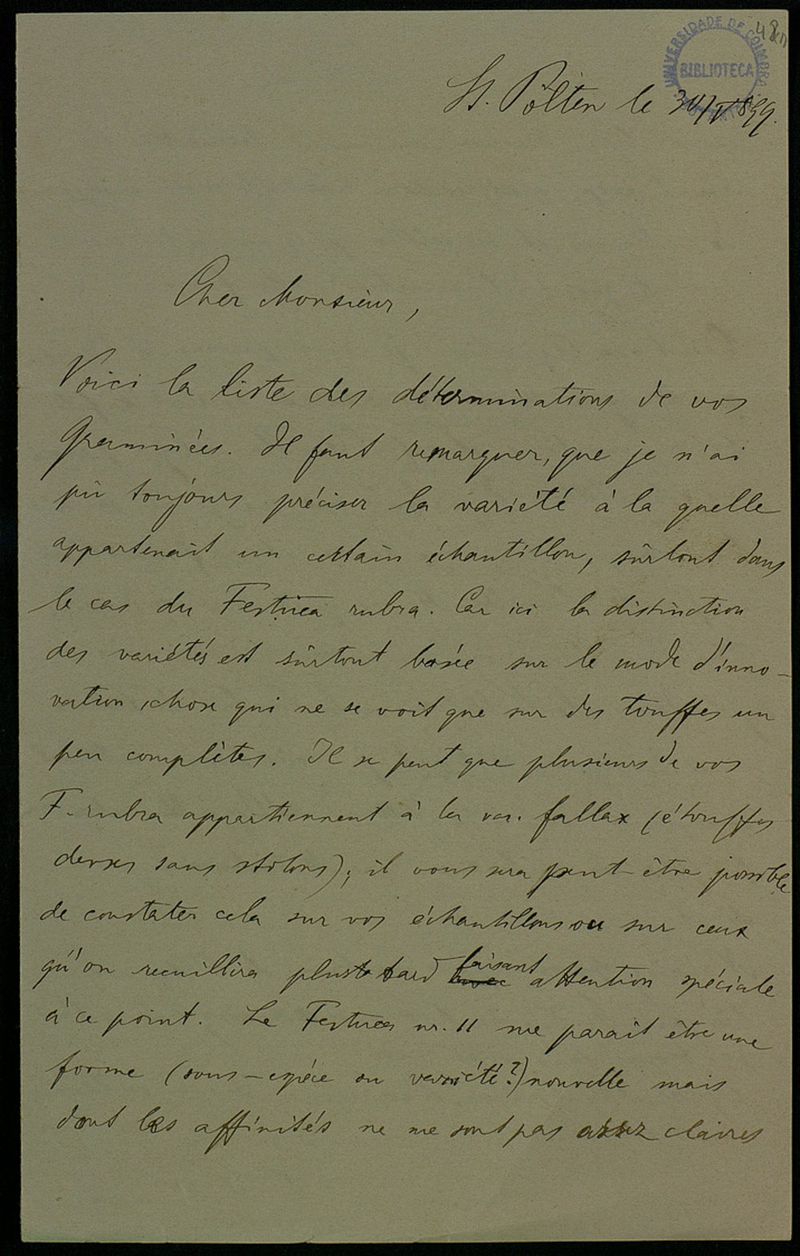 UNIVERSIDADE DE COIMBRA
BIBLIOTECA
St. Pölten le 30/V 899.
Cher Monsieur,
Voici la liste des déterminations de vos
Graminées. Il faut remarquer, que je n'ai
pû toujours préciser la variété à la quelle
appartenait un certain échantillon, sûrtout dans
le cas du Festuca rubra. Car ici la distinction
des variétés est sûrtout basée sur le mode d'inno-
vation, chose qui ne se voit que sur des touffes un
peu complètes. Il se peut que plusieurs de vos
F. rubra appartiennent à la var. fallax (à touffes
denses sans stolons); il vous sera peut-être possible
de constater cela sur vos échantillons ou sur ceux
qu'on recuillira plus tard faisant attention spéciale
à ce point. Le Festuca nr. 11 me parait être une
forme (sous-espéce ou varieté?) nouvelle mais
dont les affinités ne me sont pas assez claires